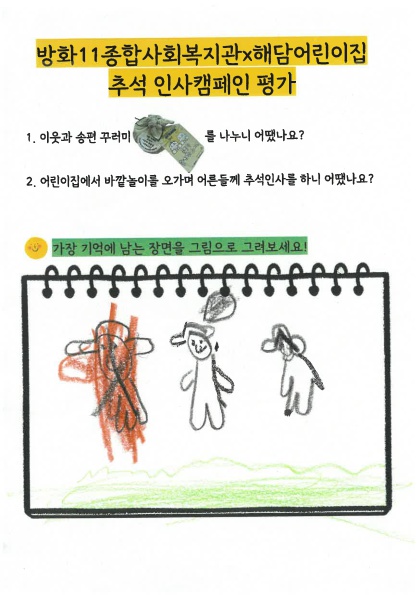 방화11종합사회복지관x해담어린이집
추석 인사캠페인 평가
1. 이웃과 송편 꾸러미 를 나누니 어땠나요?
2. 어린이집에서 바깥놀이를 오가며 어른들께 추석인사를 하니 어땠나요?
가장 기억에 남는 장면을 그림으로 그려보세요!